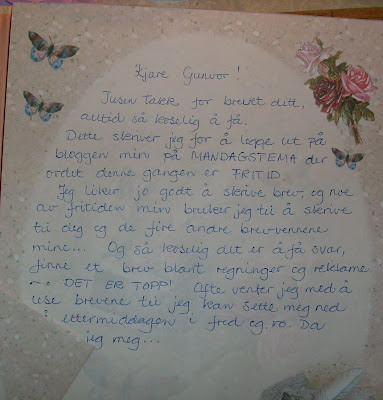 Kjære Gunvor!
Tusen takk for brevet ditt,
alltid så koselig å få.
Dette skriver jeg for å legge ut på
bloggen min på MANDAGSTEMA der
ordet denne gangen er FRITID.
Jeg liker jo godt å skrive brev, og noe
av fritiden min bruker jeg til å skrive
til deg og de fire andre brevvennene
mine... Og så koselig det er å få svar,
finne et brev blant regninger og reklame
~. DET ER TOPP! Ofte venter jeg med å
lese brevene til jeg kan sette meg ned
i ettermiddagen i fred og ro. Da
jeg meg...